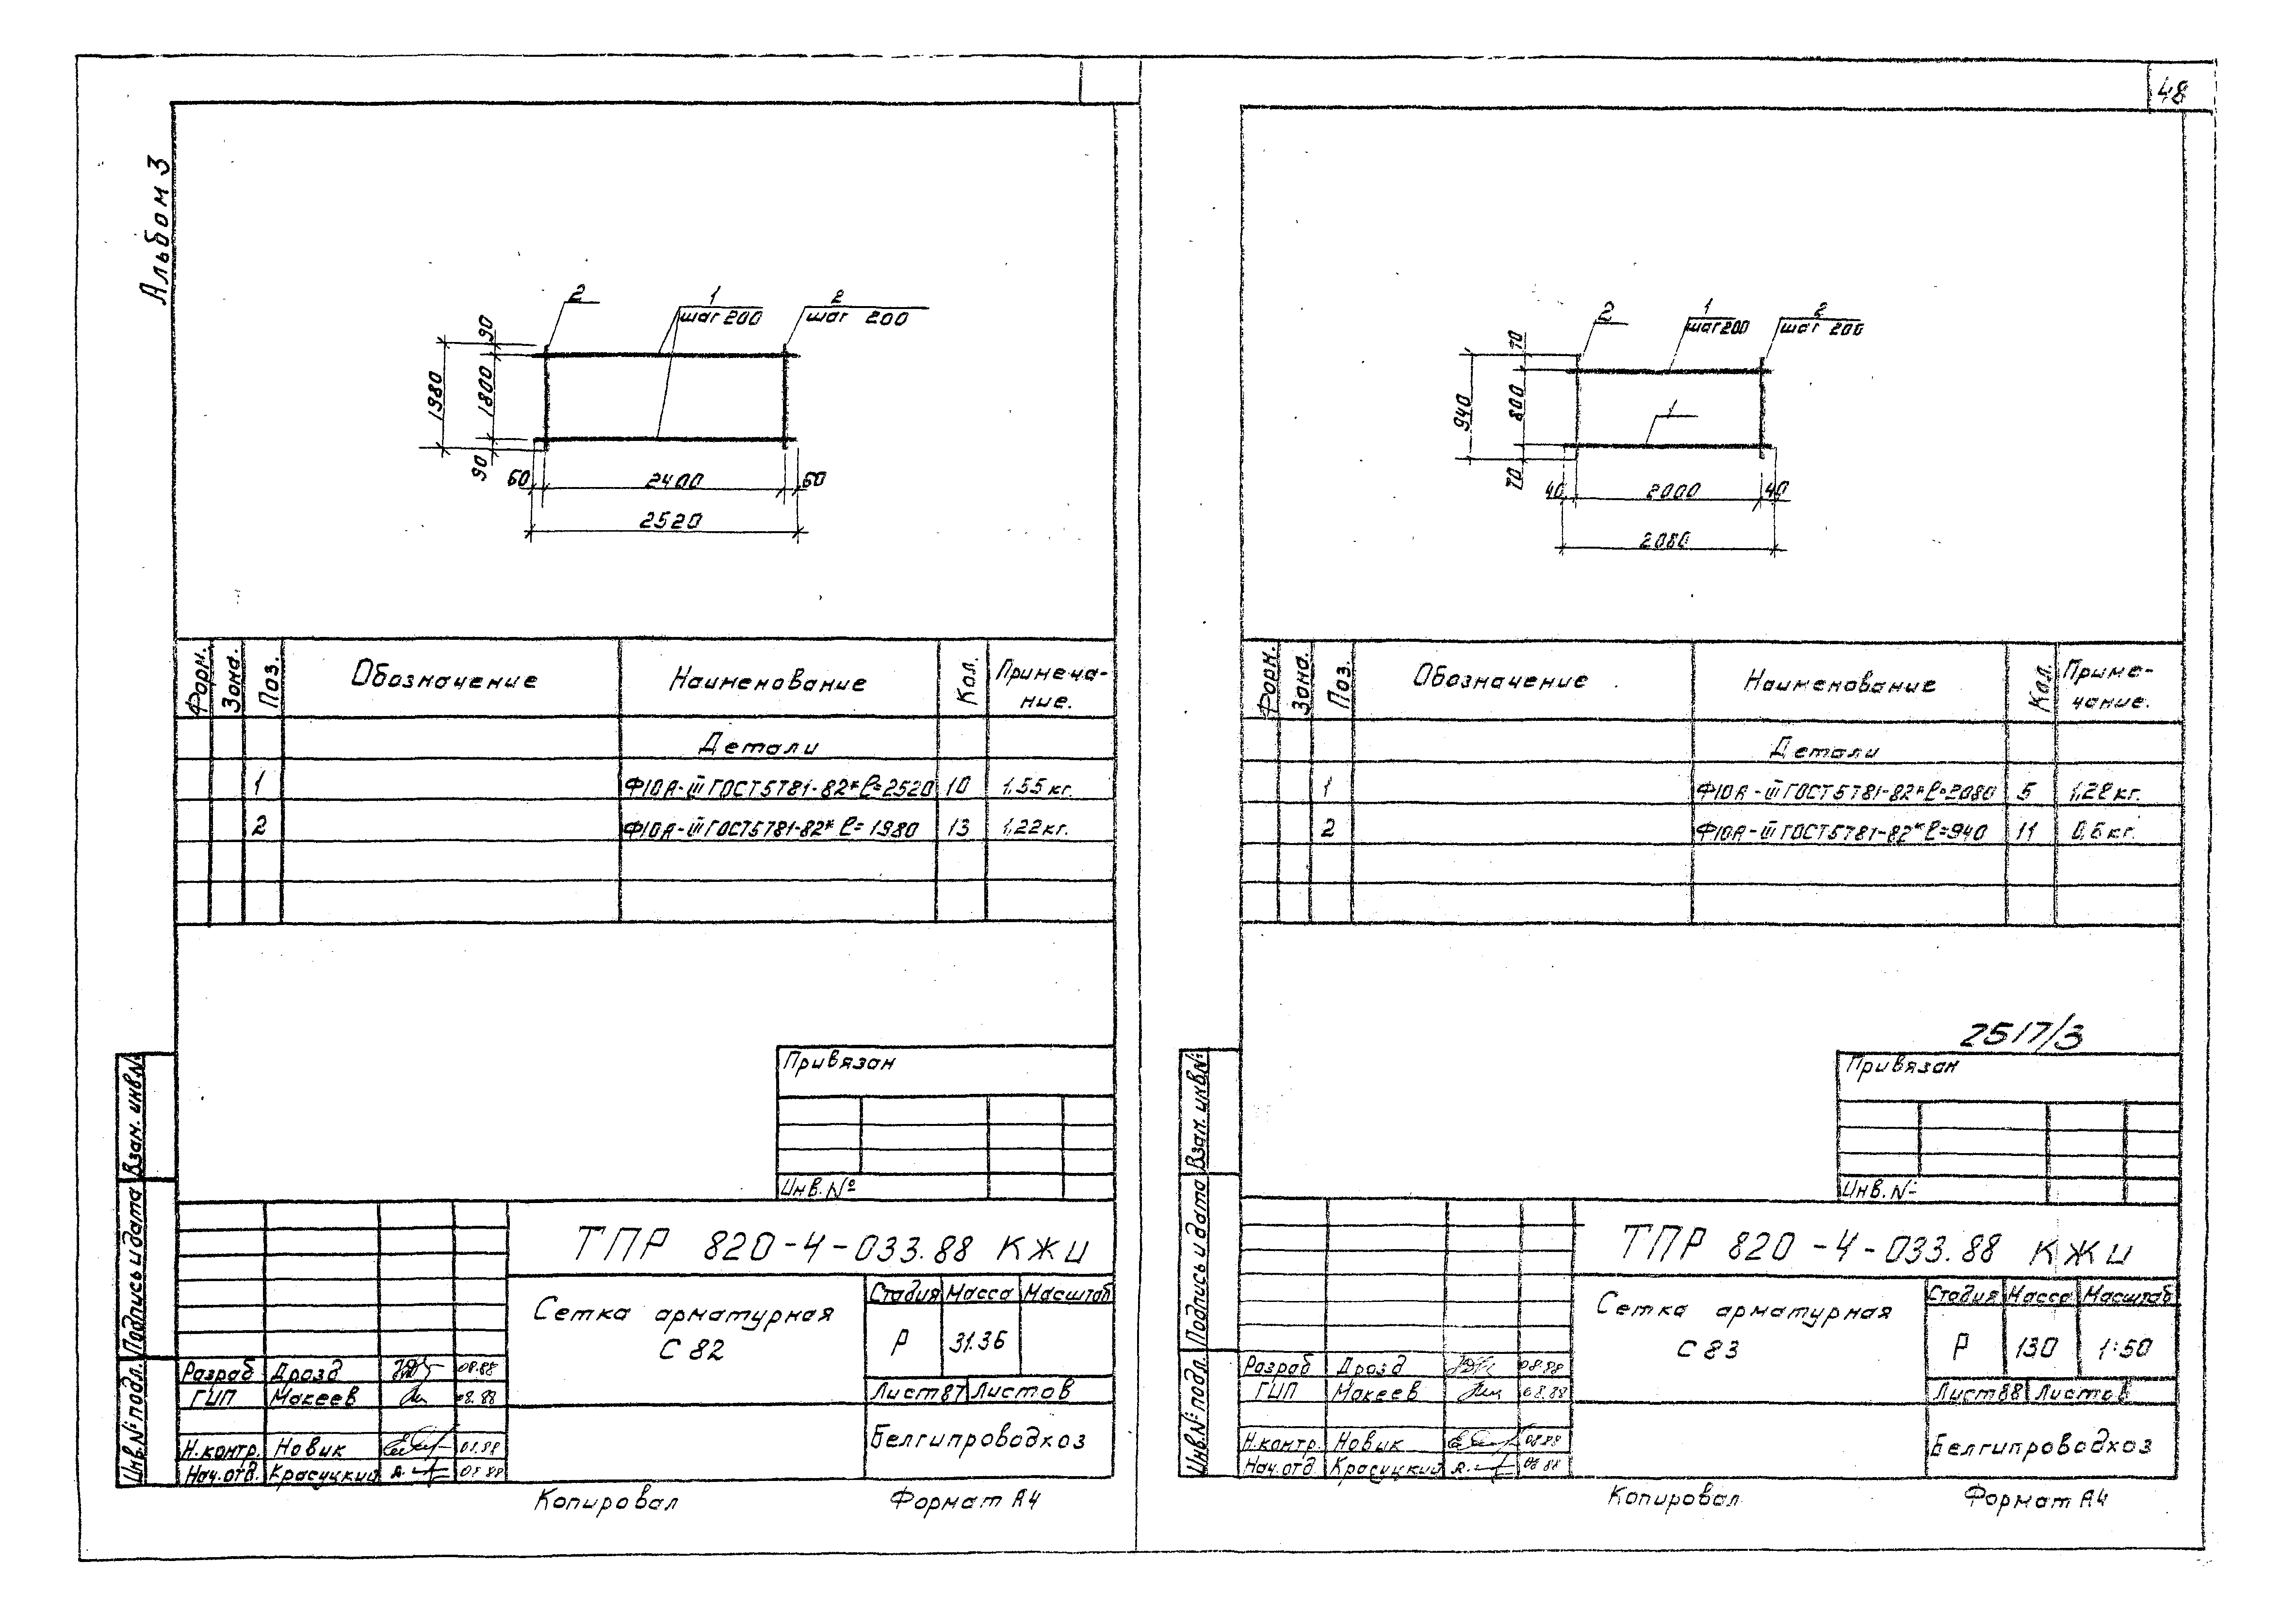 48
Альбом 3
2
1
шаг 200
2
шаг 200
90
1800
1980
90
60
2400
60
2520
Форм.
Зона.
Поз.
Обозначение
Наименование
Кол.
Примеча-
ние.
Детали
1 Ф10А-III ГОСТ5781-82* ℓ=2520 10 1,55кг.
2 Ф10А-III ГОСТ5781-82* ℓ=1980 13 1,22кг.
Привязан
Инв.№
ТПР 820-4-033.88 КЖИ
Сетка арматурная
С 82
Стадия Масса Масштаб
Р 31.36
Лист87 Листов
Белгипроводхоз
Разраб Дрозд 08.88
ГИП Макеев 08.88
Н.контр. Новик 08.88
Нач.отд. Красуцкий 08 88
Взам. инв.№
Подпись и дата
Инв.№ подл.
Копировал Формат А4
2
1
шаг 200
2
шаг 200
1
70
800
940
70
40
2000
40
2080
Форм.
Зона.
Поз.
Обозначение
Наименование
Кол.
Приме-
чание.
Детали
1 Ф10А-III ГОСТ5781-82* ℓ=2080 5 1,28кг.
2 Ф10А-III ГОСТ5781-82* ℓ=940 11 0,6кг.
2517/3
Привязан
Инв.№
ТПР 820-4-033.88 КЖИ
Сетка арматурная
С 83
Стадия Масса Масштаб
Р 130 1:50
Лист88 Листов
Белгипроводхоз
Разраб Дрозд 08.88
ГИП Макеев 08.88
Н.контр. Новик 08.88
Нач.отд Красуцкий 08 88
Взам. инв.№
Подпись и дата
Инв.№ подл.
Копировал Формат А4